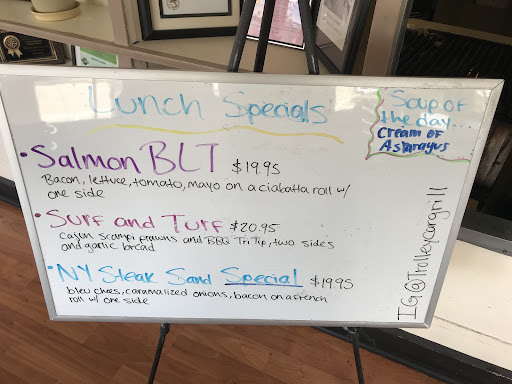 Lunch Specials
Soup of
the day...
Cream of
Asparagus
• Salmon BLT $19.95
Bacon, lettuce, tomato, mayo on a ciabatta roll w/
one side
• Surf and Turf $20.95
cajun scampi prawns and BBQ Tri Tip, two sides
and garlic bread
• NY Steak Sand Special $19.95
bleu chees, caramalized onions, bacon on a french
roll w/ one side
IG@Trolleycargrill